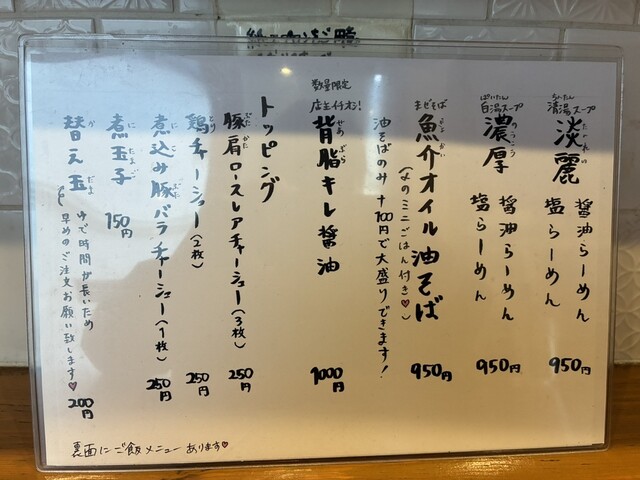 清湯スープ
淡麗
醤油らーめん
塩らーめん
950円
ぱいたん
白湯スープ
のうこう
濃厚
醤油らーめん
塩らーめん
950円
まぜそば
魚介オイル油そば
(〆のミニごはん付き♡)
950円
油そばのみ+100円で大盛りできます!
数量限定
店主イチオシ!
せあぶら
背脂キレ醤油
1000円
トッピング
豚肩ロースレアチャーシュー(3枚)
250円
とり
鶏チャーシュー(2枚)
250円
煮込み豚バラチャーシュー(1枚)
250円
煮玉子 150円
か だま
替え玉
ゆで時間が長いため
早めのご注文お願い致します♥
200円
裏面にご飯メニューあります♡